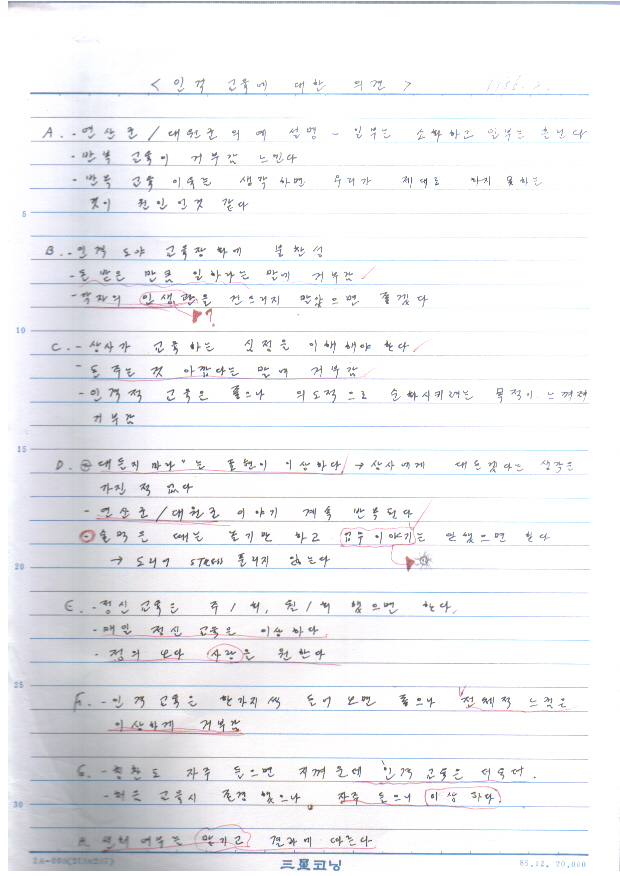 < 인격 교육에 대한 의견 >
A. - 연산군 / 대원군의 예 설명 - 일부는 소화하고 일부는 흘린다
- 반복 교육이 거부감 느낀다
- 반복 교육 이유는 생각하면 우리가 제대로 하지 못하는
것이 원인인것 같다
5
B. - 인격 도야 교육장화에 불찬성
- 돈 받은 만큼 일하라는 말에 거부감
- 각자의 인생관을 건드리지 말았으면 좋겠다
?
10
C. - 상사가 교육하는 심정을 이해해야 한다
- 돈 주는 것 아깝다는 말에 거부감
- 인격적 교육은 좋으나 의도적으로 순화시키려는 목적이 느껴져
거부감
15
D. - "대든지 마라"는 표현이 이상하다 → 상사에게 대든겠다는 생각은
가진 적 없다
- 연산군 / 대원군 이야기 계속 반복된다
- 술 먹은 때는 놀기만 하고 업무이야기는 안했으면 한다
→ 도리어 STRESS 풀리지 않는다
20
E. - 정신 교육은 주 / 회, 월 / 회 했으면 한다.
- 매일 정신 교육은 이상하다
- 정의 보다 사랑을 원한다
25
F. - 인격 교육은 한가지씩 들어보면 좋으나 전체적 느낌은
이상하게 거부감
G. - 칭찬도 자주 들으면 지겨운데 인격 교육은 더욱더.
- 처음 교육시 존경 했으나 자주 들으니 이상하다
30
H. 여부는 맡기고 결과에 따른다
2A-
三星코닝
85.12. 20,000